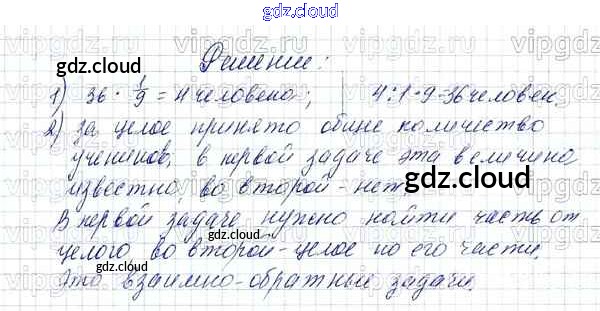 gdz.cloud
Решение:
gdz.cloud
1) 36 · 1/9 = 4 человека; 4:1·9=36 человек.
gdz.cloud
2) за целое принято общее количество
учеников, в первой задаче эта величина
известно, во второй - нет.
gdz.cloud
В первой задаче нужно найти часть от
целого, во второй - целое по его части.
gdz.cloud
Это взаимно-обратные задачи.